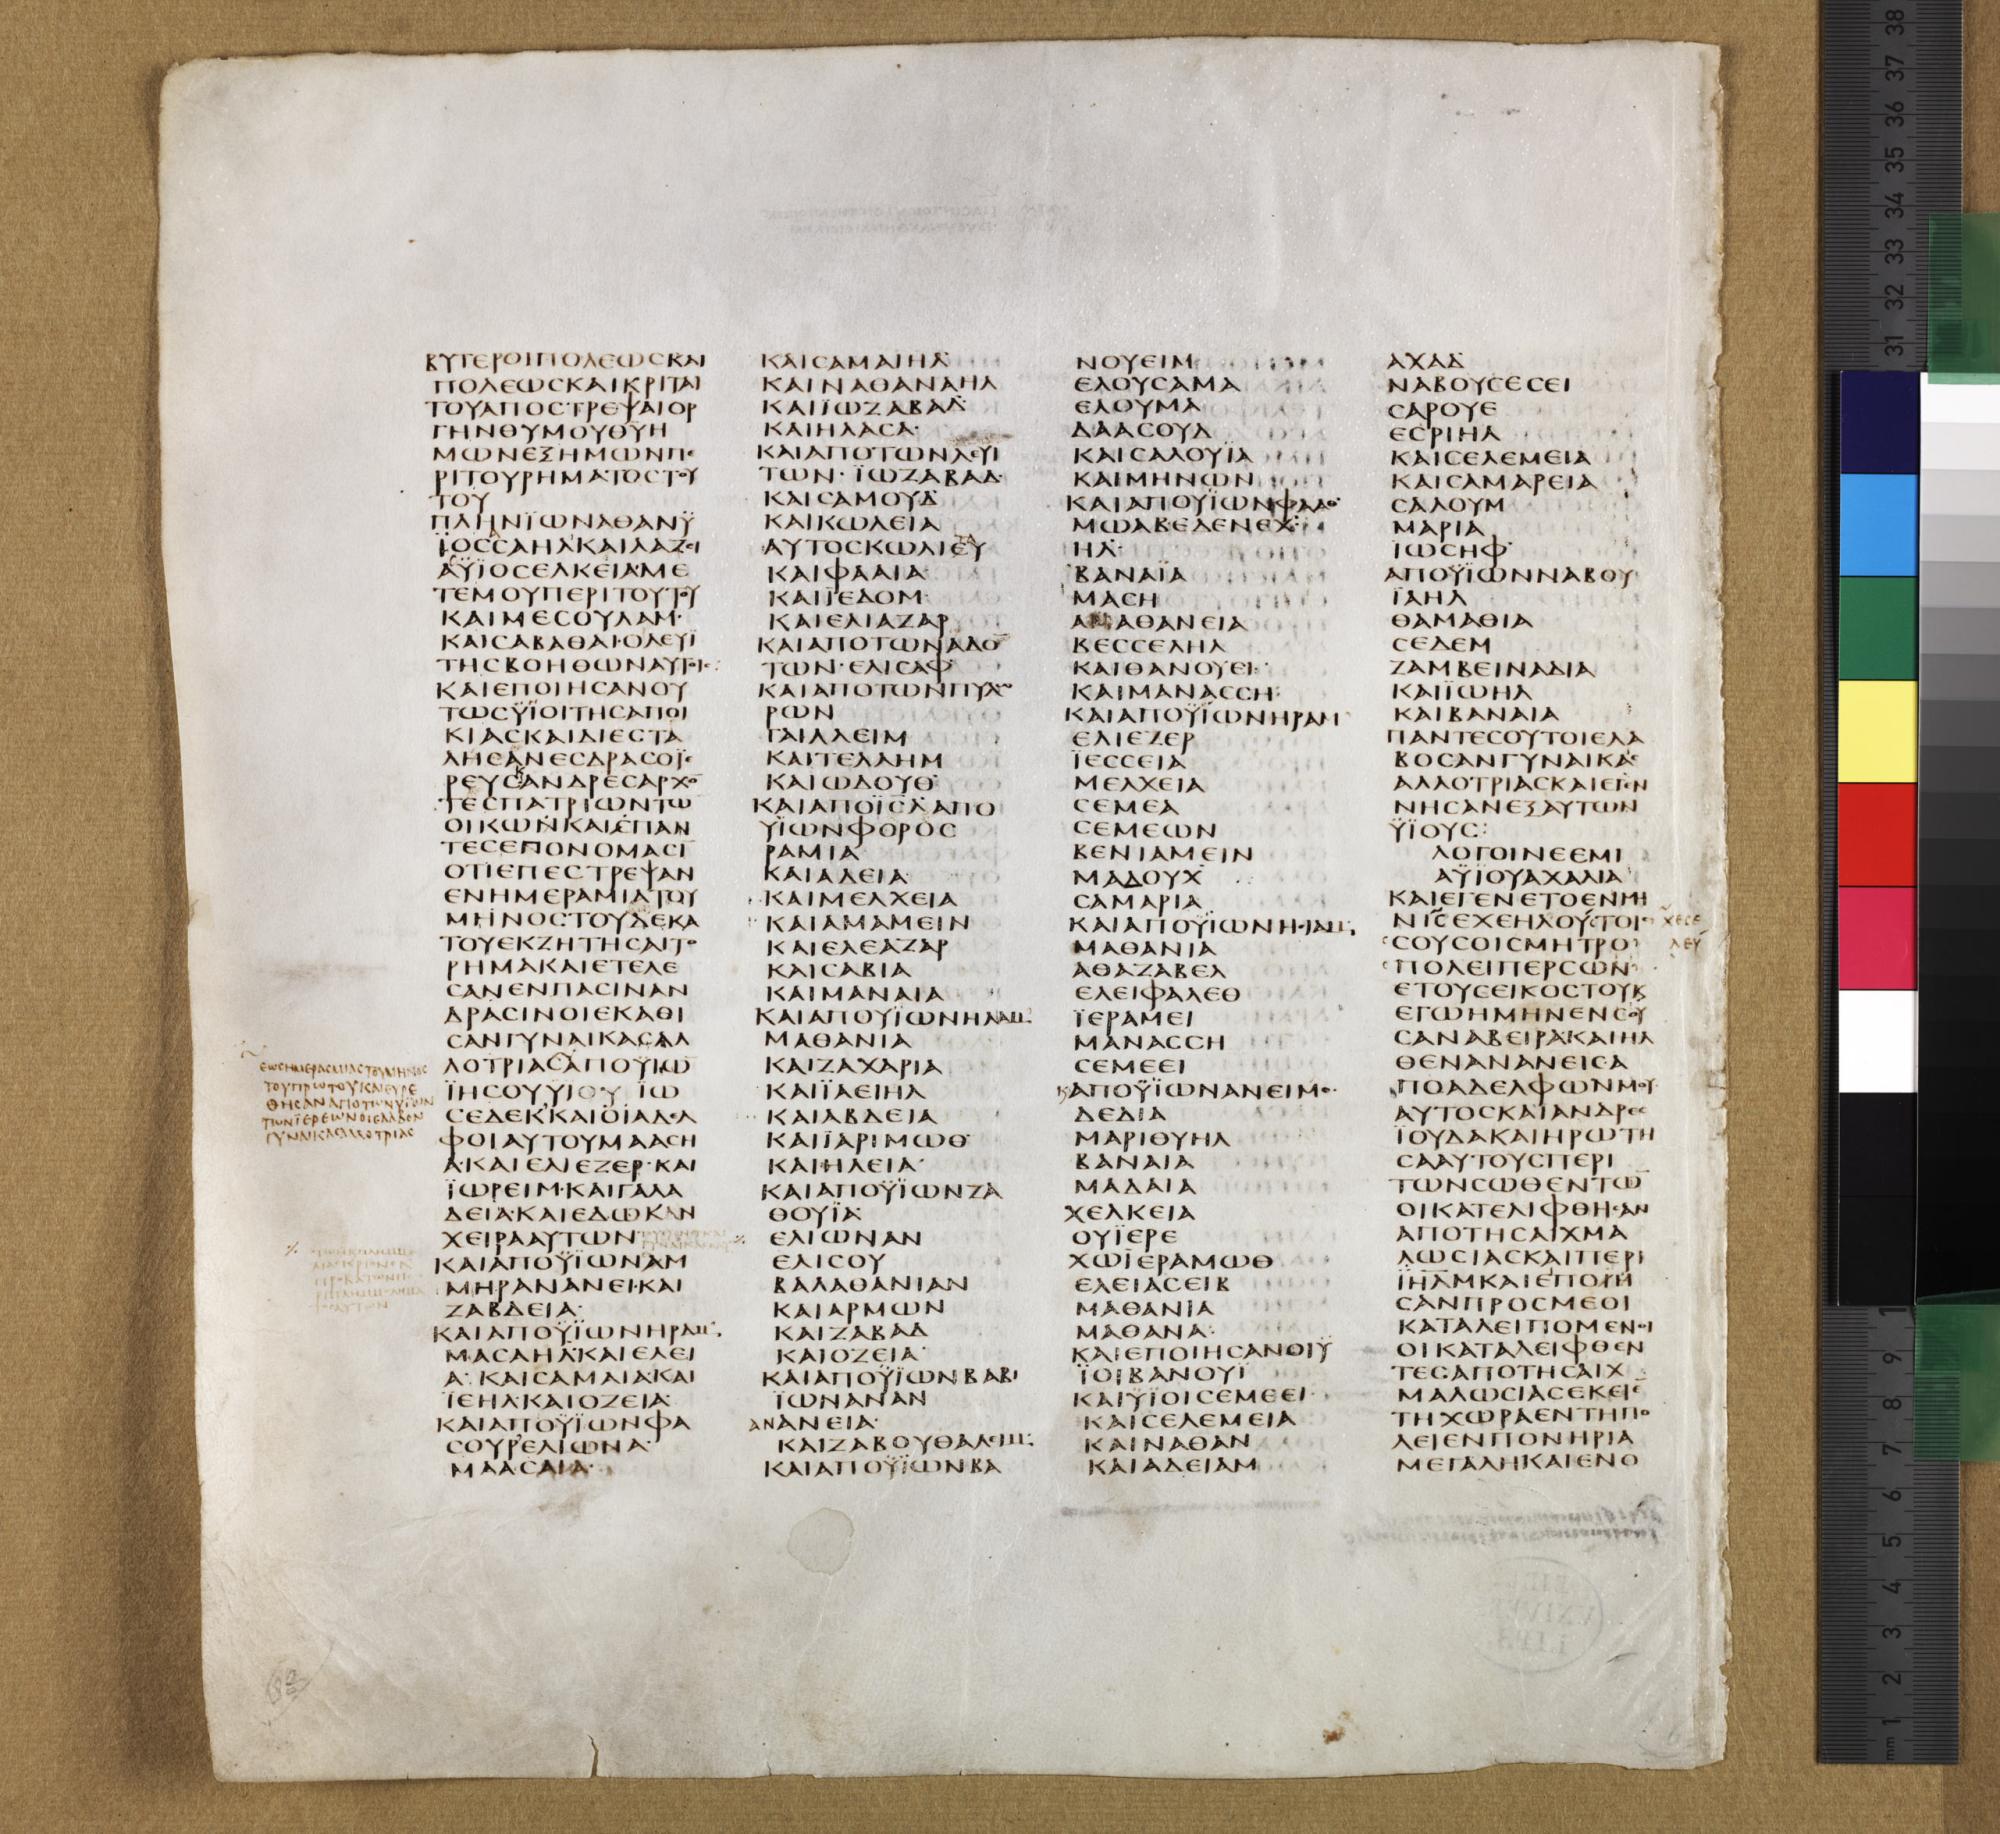 ΒΥΤΕΡΟΙΠΟΛΕΩСΚΑΙ
ΠΟΛΕΩСΚΑΙΚΡΙΤΑΙ
ΤΟΥΑΠΟСΤΡΕΨΑΙΟΡ
ΓΗΝΘΥΜΟΥΘΥΗ
ΜΩΝΕΞΗΜΩΝΠΕ
ΡΙΤΟΥΡΗΜΑΤΟСΤΟΥ
ΤΟΥ
ΠΛΗΝΪΩΝΑΘΑΝΫ
ΪΟССΑΗΛΚΑΙΛΑΖΕΙ
ΑΫΪΟСΕΛΚΕΙΑΜΕ
ΤΕΜΟΥΠΕΡΙΤΟΥΤΟΥ
ΚΑΙΜΕСΟΥΛΑΜ·
ΚΑΙСΑΒΑΘΑΙ·ΟΛΕΥΪ
ΤΗСΒΟΗΘΩΝΑΥΤΟΙС
ΚΑΙΕΠΟΙΗСΑΝΟΥ
ΤΩСΫΪΟΙΤΗСΑΠΟΙ
ΚΙΑСΚΑΙΔΙΕСΤΑ
ΛΗСΑΝΕСΔΡΑСΟΪΕ
ΡΕΥСΑΝΔΡΕСΑΡΧΟ
ΤΕСΠΑΤΡΙΩΝΤΩ
ΟΙΚΩΝΚΑΙΕΠΑΝ
ΤΕСΕΠΟΝΟΜΑСΙ
ΟΤΙΕΠΕСΤΡΕΨΑΝ
ΕΝΗΜΕΡΑΜΙΑΤΟΥ
ΜΗΝΟСΤΟΥΔΕΚΑ
ΤΟΥΕΚΖΗΤΗСΑΙΤΟ
ΡΗΜΑΚΑΙΕΤΕΛΕ
СΑΝΕΝΠΑСΙΝΑΝ
ΔΡΑСΙΝΟΙΕΚΑΘΙ
СΑΝΓΥΝΑΙΚΑСΑΛ
ΛΟΤΡΙΑСΑΠΟΥΪΩ
ΪΗСΟΥΥΙΟΥΪΩ
СΕΔΕΚ'ΚΑΙΟΪΑΔΕΛ
ΦΟΙΑΥΤΟΥΜΑΑСΗ
Α·ΚΑΙΕΛΙΕΖΕΡ·ΚΑΙ
ΪΩΡΕΙΜ·ΚΑΙΓΑΛΑ
ΔΕΙΑ·ΚΑΙΕΔΩΚΑΝ
ΧΕΙΡΑΑΥΤΩΝ
ΚΑΙΑΠΟΫΪΩΝΑΜ
ΜΗΡΑΝΑΝΕΙ·ΚΑΙ
ΖΑΒΔΕΙΑ·
ΚΑΙΑΠΟΫΪΩΝΗΡΑΜ·
ΜΑСΑΗΛ·ΚΑΙΕΛΕΙ
Α·ΚΑΙСΑΜΑΙΑ·ΚΑΙ
ΪΕΗΛ·ΚΑΙΟΖΕΙΑ
ΚΑΙΑΠΟΫΪΩΝΦΑ
СΟΥΡΕΛΙΩΝΑ·
ΜΑΑСΑΙΑ·
ΕΩСΗΜΕΡΑСΜΙΑСΤΟΥΜΗΝΟС
ΤΟΥΠΡΩΤΟΥΚΑΙΕΥΡΕ
ΘΗСΑΝΑΠΟΤΩΝΫΪΩΝ
ΤΩΝΪΕΡΕΩΝΟΙΕΛΑΒΟΝ
ΓΥΝΑΙΚΑСΑΛΛΟΤΡΙΑС
ΚΑΙСΑΜΑΙΗΛ
ΚΑΙΝΑΘΑΝΑΗΛ
ΚΑΙΪΩΖΑΒΑΔ
ΚΑΙΗΛΑСΑ·
ΚΑΙΑΠΟΤΩΝΛΕΥΙ
ΤΩΝ·ΪΩΖΑΒΑΔ·
ΚΑΙСΑΜΟΥΔ
ΚΑΙΚΩΛΕΙΑ
ΑΥΤΟСΚΩΛΙΕΥ
ΚΑΙΦΑΑΙΑ
ΚΑΙΪΕΔΟΜ
ΚΑΙΕΛΙΑΖΑΡ
ΚΑΙΑΠΟΤΩΝΑΔΟ
ΤΩΝ·ΕΛΙСΑΦ
ΚΑΙΑΠΟΤΩΝΠΥΛΩ
ΡΩΝ
ΓΑΙΛΛΕΙΜ
ΚΑΙΤΕΛΛΗΜ
ΚΑΙΩΔΟΥΘ
ΚΑΙΑΠΟΪСΛΑΠΟ
ΥΪΩΝΦΟΡΟС
ΡΑΜΙΑ
ΚΑΙΑΔΕΙΑ·
ΚΑΙΜΕΛΧΕΙΑ
ΚΑΙΑΜΑΜΕΙΝ
ΚΑΙΕΛΕΑΖΑΡ
ΚΑΙСΑΒΙΑ
ΚΑΙΜΑΝΑΙΑ
ΚΑΙΑΠΟΥΪΩΝΗΛΑΜ·
ΜΑΘΑΝΙΑ
ΚΑΙΖΑΧΑΡΙΑ
ΚΑΙΪΑΕΙΗΛ
ΚΑΙΑΒΔΕΙΑ
ΚΑΙΪΑΡΙΜΩΘ
ΚΑΙΗΛΕΙΑ·
ΚΑΙΑΠΟΫΪΩΝΖΑ
ΘΟΥΪΑ
ΕΛΙΩΝΑΝ
ΕΛΙСΟΥ
ΒΑΛΑΘΑΝΙΑΝ
ΚΑΙΑΡΜΩΝ
ΚΑΙΖΑΒΑΔ
ΚΑΙΟΖΕΙΑ·
ΚΑΙΑΠΟΥΪΩΝΒΑΒΙ
ΪΩΝΑΝΑΝ
ΑΝΑΝΕΙΑ·
ΚΑΙΖΑΒΟΥΘΑΛΕΜ:
ΚΑΙΑΠΟΥΪΩΝΒΑ
ΝΟΥΕΙΜ
ΕΔΟΥСΑΜΑ
ΕΔΟΥΜΑ
ΔΑΑСΟΥΛ
ΚΑΙСΑΛΟΥΪΑ
ΚΑΙΜΗΝΩΝ
ΚΑΙΑΠΟΥΪΩΝΦΑΑΘ·
ΜΩΑΒΕΔΕΝΕΧ·
ΗΛ·
ΒΑΝΑΪΑ
ΜΑСΗ
ΑΜΑΘΑΝΕΙΑ
ΒΕССΕΛΗΛ
ΚΑΙΘΑΝΟΥΕΙ·
ΚΑΙΜΑΝΑССΗ·
ΚΑΙΑΠΟΥΪΩΝΗΡΑΜ
ΕΛΙΕΖΕΡ
ΪΕССΕΙΑ
ΜΕΛΧΕΙΑ
СΕΜΕΑ
СΕΜΕΩΝ
ΒΕΝΙΑΜΕΙΝ
ΜΑΔΟΥΧ
СΑΜΑΡΙΑ
ΚΑΙΑΠΟΥΪΩΝΗСΑΜ·
ΜΑΘΑΝΙΑ
ΑΘΑΖΑΒΕΛ
ΕΛΕΙΦΑΛΕΘ
ΪΕΡΑΜΕΙ
ΜΑΝΑССΗ
СΕΜΕΕΙ
ΚΑΠΟΫΪΩΝΑΝΕΙΜΟ·
ΔΕΔΙΑ
ΜΑΡΙΘΥΗΛ
ΒΑΝΑΙΑ
ΜΑΔΑΙΑ
ΧΕΛΚΕΙΑ
ΟΥΪΕΡΕ
ΧΩΪΕΡΑΜΩΘ
ΕΛΕΙΑСΕΙΒ
ΜΑΘΑΝΙΑ
ΜΑΘΑΝΑ·
ΚΑΙΕΠΟΙΗСΑΝΟΙΫ
ΪΟΙΒΑΝΟΥΙ
ΚΑΙΫΪΟΙСΕΜΕΕΙ·
ΚΑΙСΕΛΕΜΕΙΑ
ΚΑΙΝΑΘΑΝ
ΚΑΙΑΔΕΙΑΜ
ΑΧΑΔ
ΝΑΒΟΥСΕСΕΙ
СΑΡΟΥΕ
ΕСΡΙΗΛ
ΚΑΙСΕΛΕΜΕΙΑ
ΚΑΙСΑΜΑΡΕΙΑ
СΑΛΟΥΜ
ΜΑΡΙΑ
ΪΩСΗΦ·
ΑΠΟΥΪΩΝΝΑΒΟΥ
ΪΑΗΛ
ΘΑΜΑΘΙΑ
СΕΔΕΜ
ΖΑΜΒΕΙΝΑΔΙΑ
ΚΑΙΪΩΗΛ
ΚΑΙΒΑΝΑΙΑ
ΠΑΝΤΕСΟΥΤΟΙΕΛΑ
ΒΟСΑΝΓΥΝΑΙΚΑС
ΑΛΛΟΤΡΙΑСΚΑΙΕΓΕΝ
ΝΗСΑΝΕΞΑΥΤΩΝ
ΫΪΟΥС:
ΛΟΓΟΙΝΕΕΜΙ
ΑΫΪΟΥΑΧΑΛΙΑ
ΚΑΙΕΓΕΝΕΤΟΕΝΜΗ
ΝΙСΕΧΕΗΛΟΥСΤΟΙ
СΟΥСΟΙСΜΗΤΡΟ
ΠΟΛΕΙΠΕΡСΩΝ
ΕΤΟΥСΕΙΚΟСΤΟΥΚ
ΕΓΩΗΜΗΝΕΝСΟΥ
СΑΝΑΒΕΙΡΑΚΑΙΗΛ
ΘΕΝΑΝΑΝΕΙСΑ
ΠΟΑΔΕΛΦΩΝΜΟΥ
ΑΥΤΟСΚΑΙΑΝΔΡΕС
ΪΟΥΔΑΚΑΙΗΡΩΤΗ
СΑΑΥΤΟΥСΠΕΡΙ
ΤΩΝСΩΘΕΝΤΩ
ΟΙΚΑΤΕΛΙΦΘΗСΑΝ
ΑΠΟΤΗСΑΙΧΜΑ
ΛΩСΙΑСΚΑΙΠΕΡΙ
ΪΗΛΜΚΑΙΕΠΟΙΗ
СΑΝΠΡΟСΜΕΟΙ
ΚΑΤΑΛΕΙΠΟΜΕΝΟΙ
ΟΙΚΑΤΑΛΕΙΦΘΕΝ
ΤΕСΑΠΟΤΗСΑΙΧ
ΜΑΛΩСΙΑСΕΚΕΙ
ΤΗΧΩΡΑΕΝΤΗΠΟ
ΛΕΙΕΝΠΟΝΗΡΙΑ
ΜΕΓΑΛΗΚΑΙΕΝΟ